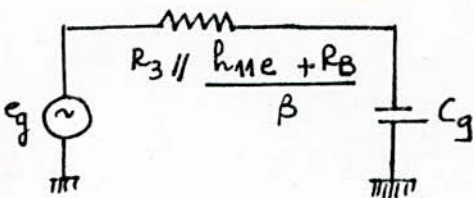 R3 // h11e + RB
β
eg
~
Cg